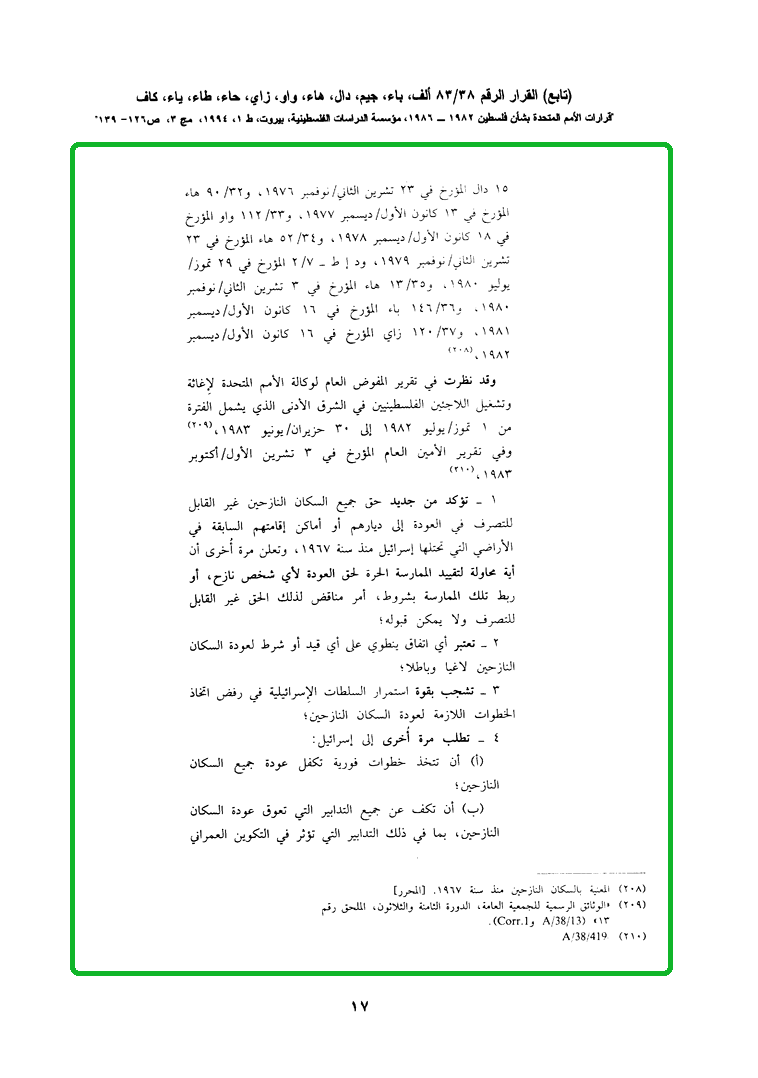 (تابع) القرار الرقم ٨٣/٣٨ ألف، باء، جيم، دال، هاء، واو، زاي، حاء، طاء، ياء، كاف
"قرارات الأمم المتحدة بشأن فلسطين ١٩٨٢ ــ ١٩٨٦، مؤسسة الدراسات الفلسطينية، بيروت، ط ١، ١٩٩٤، مج ٣، ص١٢٦- ١٣٩"
١٥ دال المؤرخ في ٢٣ تشرين الثاني/نوفمبر ١٩٧٦، و٩٠/٣٢ هاء
المؤرخ في ١٣ كانون الأول/ديسمبر ١٩٧٧، و١١٢/٣٣ واو المؤرخ
في ١٨ كانون الأول/ديسمبر ١٩٧٨، و٥٢/٣٤ هاء المؤرخ في ٢٣
تشرين الثاني/نوفمبر ١٩٧٩، ود إ ط ـ ٢/٧ المؤرخ في ٢٩ تموز/
يوليو ١٩٨٠، و١٣/٣٥ هاء المؤرخ في ٣ تشرين الثاني/نوفمبر
١٩٨٠، و١٤٦/٣٦ باء المؤرخ في ١٦ كانون الأول/ديسمبر
١٩٨١، و١٢٠/٣٧ زاي المؤرخ في ١٦ كانون الأول/ديسمبر
١٩٨٢،(٢٠٨)
وقد نظرت في تقرير المفوض العام لوكالة الأمم المتحدة لإغاثة
وتشغيل اللاجئين الفلسطينيين في الشرق الأدنى الذي يشمل الفترة
من ١ تموز/يوليو ١٩٨٢ إلى ٣٠ حزيران/يونيو ١٩٨٣،(٢٠٩)
وفي تقرير الأمين العام المؤرخ في ٣ تشرين الأول/أكتوبر
١٩٨٣،(٢١٠)
١ ـ تؤكد من جديد حق جميع السكان النازحين غير القابل
للتصرف في العودة إلى ديارهم أو أماكن إقامتهم السابقة في
الأراضي التي تحتلها إسرائيل منذ سنة ١٩٦٧، وتعلن مرة أُخرى أن
أية محاولة لتقييد الممارسة الحرة لحق العودة لأي شخص نازح، أو
ربط تلك الممارسة بشروط، أمر مناقض لذلك الحق غير القابل
للتصرف ولا يمكن قبوله؛
٢ ـ تعتبر أي اتفاق ينطوي على أي قيد أو شرط لعودة السكان
النازحين لاغيا وباطلا؛
٣ ـ تشجب بقوة استمرار السلطات الإسرائيلية في رفض اتخاذ
الخطوات اللازمة لعودة السكان النازحين؛
٤ ـ تطلب مرة أُخرى إلى إسرائيل:
(أ) أن تتخذ خطوات فورية تكفل عودة جميع السكان
النازحين؛
(ب) أن تكف عن جميع التدابير التي تعوق عودة السكان
النازحين، بما في ذلك التدابير التي تؤثر في التكوين العمراني
(٢٠٨) المعنية بالسكان النازحين منذ سنة ١٩٦٧. [المحرر]
(٢٠٩) «الوثائق الرسمية للجمعية العامة، الدورة الثامنة والثلاثون، الملحق رقم
١٣» (A/38/13 وCorr.1).
(٢١٠) A/38/419
١٧